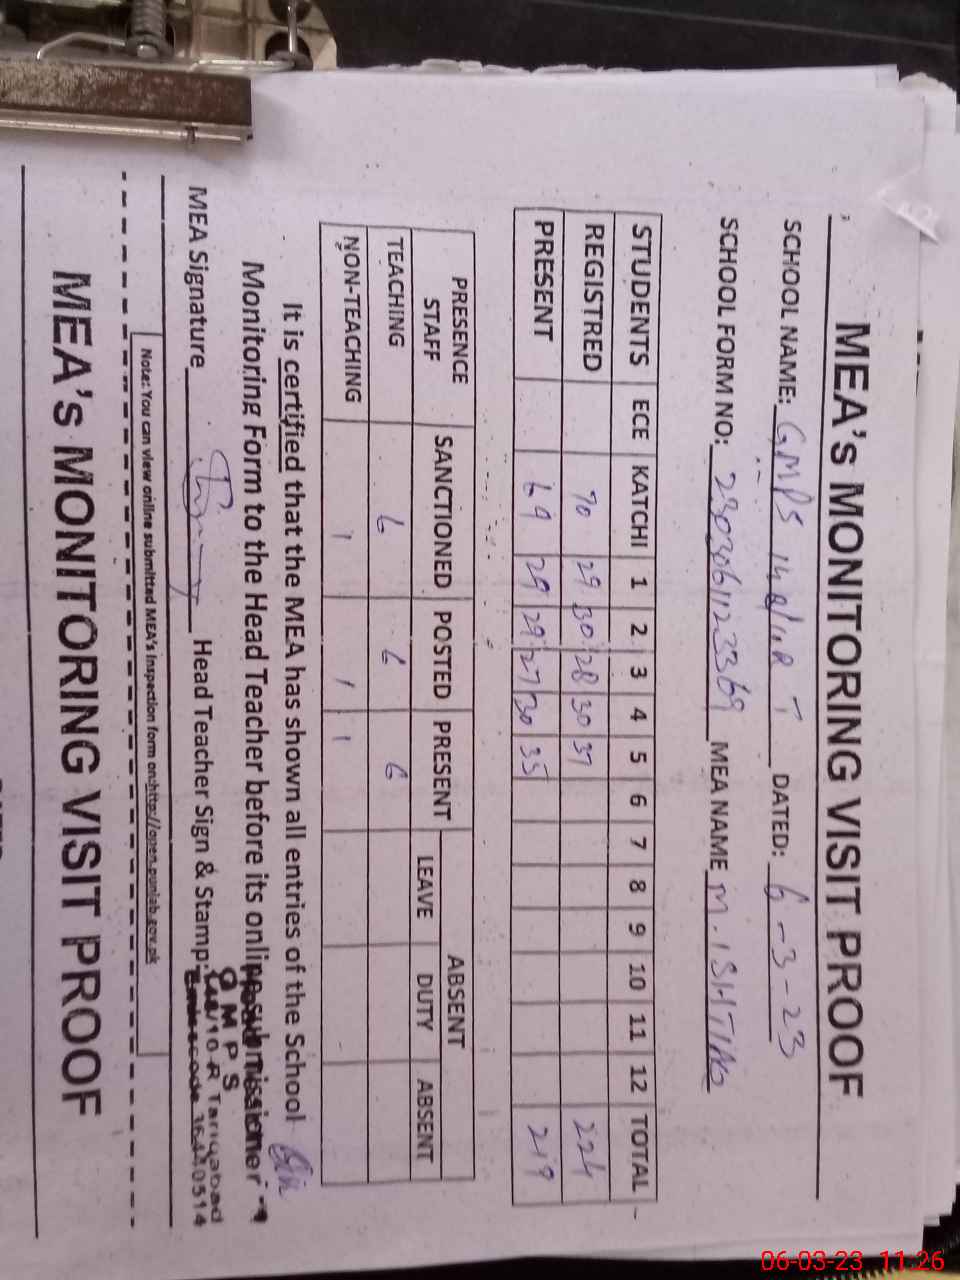 MEA's MONITORING VISIT PROOF
SCHOOL NAME: GMPS DATED: 6-3-23
SCHOOL FORM NO: 2303061123369 MEA NAME M. ISHTIAQ
STUDENTS ECE KATCHI 1 2 3 4 5 6 7 8 9 10 11 12 TOTAL
REGISTRED 70 29 30 28 30 37 224
PRESENT 69 29 29 27 30 35 219
PRESENCE STAFF SANCTIONED POSTED PRESENT ABSENT
LEAVE DUTY ABSENT
TEACHING 6 6 6
NON-TEACHING 1 1 1
It is certified that the MEA has shown all entries of the School
Monitoring Form to the Head Teacher before its online submission
MEA Signature Head Teacher Sign & Stamp:
G M P S
148/10-R Tariqabad
36440514
Note: You can view online submitted MEA's Inspection form on:http://open.punjab.gov.pk
MEA's MONITORING VISIT PROOF
06-03-23 11:26